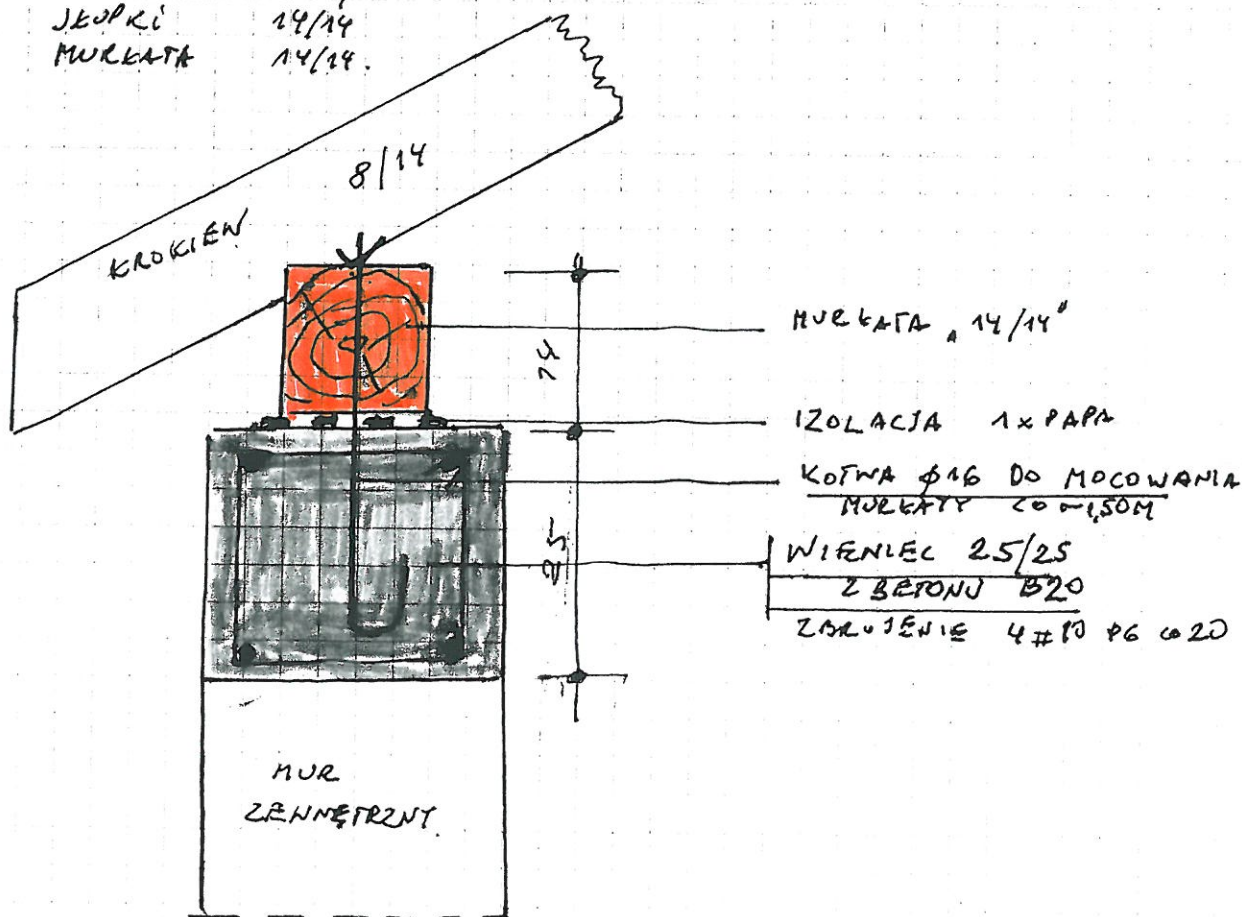 SŁUPKI 14/14
MURŁATA 14/14.
8/14
KROKIEW
14
25
MURŁATA „14/14"
IZOLACJA 1 x PAPA
KOTWA Φ16 DO MOCOWANIA
MURŁATY CO ~1,50M
WIENIEC 25/25
Z BETONU B20
ZBROJENIE 4 # Φ6 co 20
MUR
ZEWNĘTRZNY.